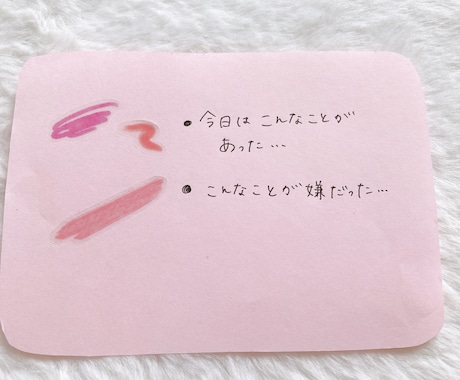 • 今日は こんなことが
あった…
• こんなことが 嫌だった…